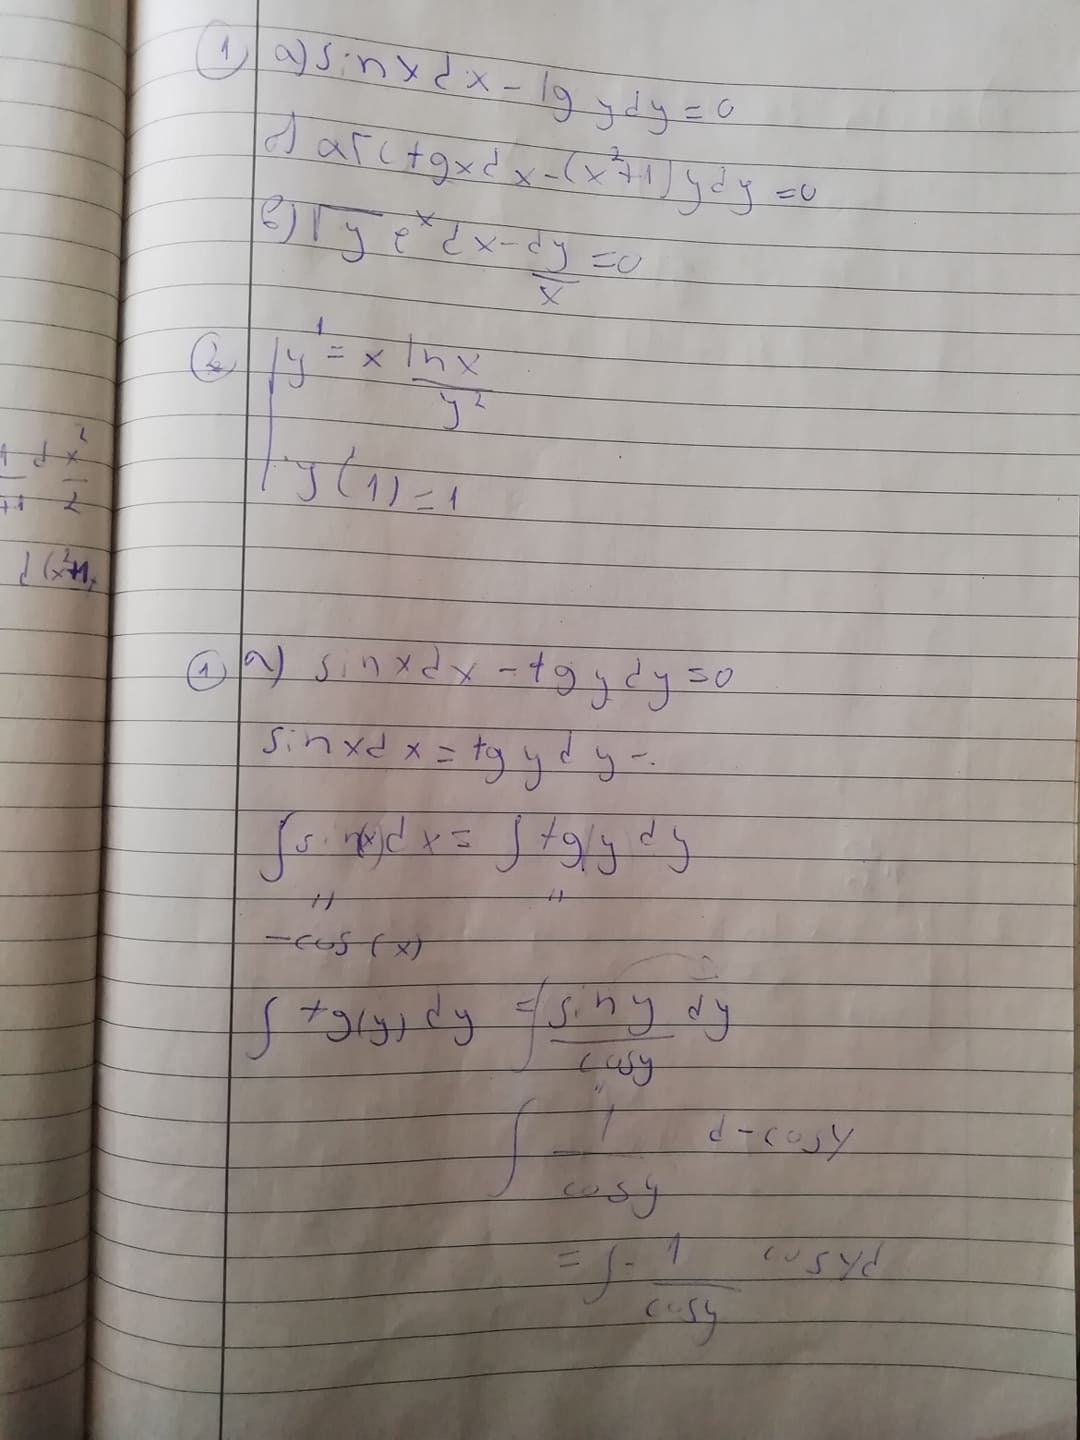 ① а) sin x dx - tg y dy = 0
б) arctg x dx - (x²+1) y dy = 0
в) √y eˣ dx - dy/x = 0
② | y' = x ln x / y²
| y(1) = 1
① а) sin x dx - tg y dy = 0
sin x dx = tg y dy
∫ sin(x) dx = ∫ tg y dy
" "
-cos(x)
∫ tg(y) dy = ∫ sin y / cos y dy
"
∫ 1 / cos y d - cos y
= ∫ - 1 / cos y cos y d
d x² / 2
d(x²+1)